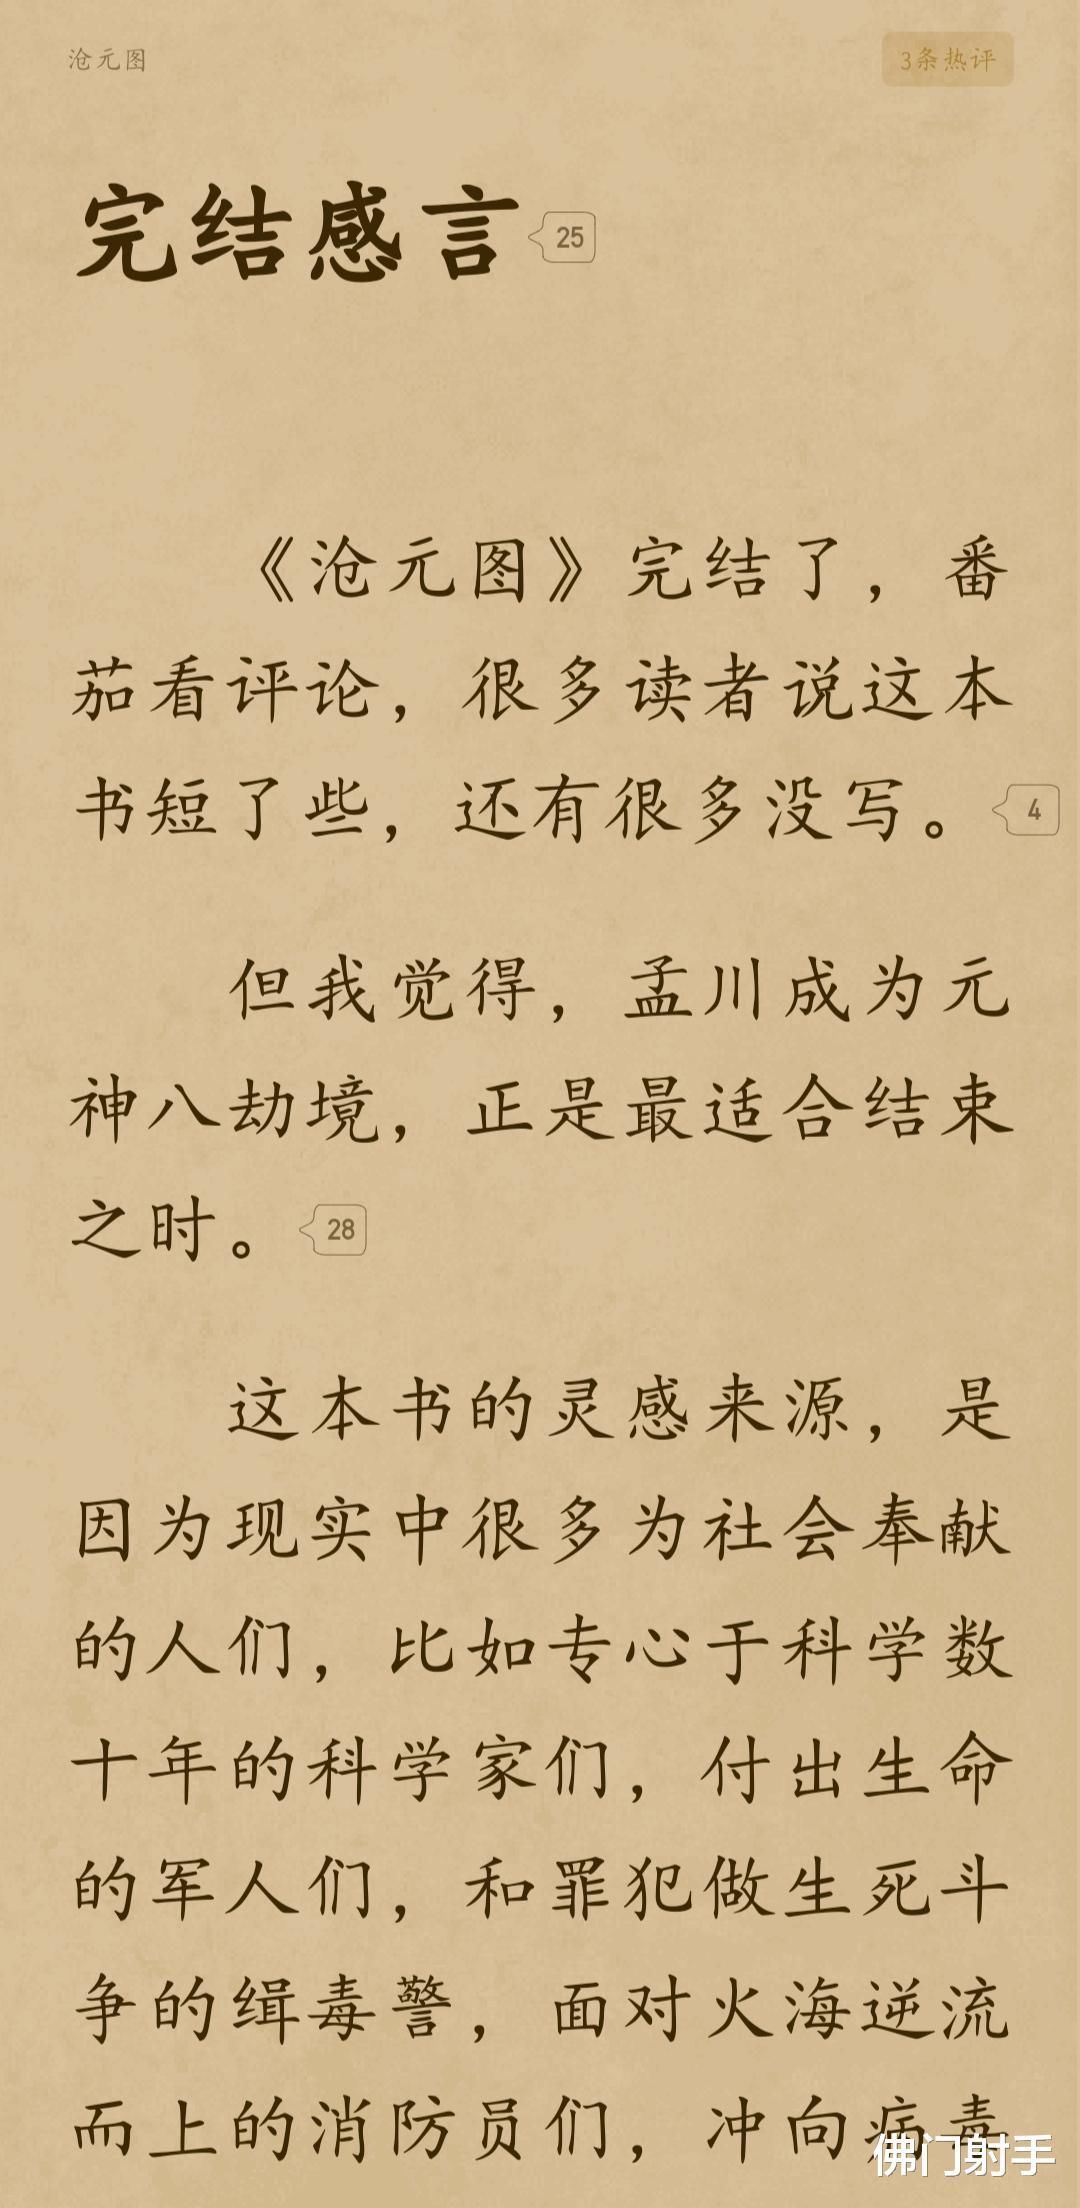 沧元图
3条热评
完结感言 25
《沧元图》完结了，番
茄看评论，很多读者说这本
书短了些，还有很多没写。 4
但我觉得，孟川成为元
神八劫境，正是最适合结束
之时。 28
这本书的灵感来源，是
因为现实中很多为社会奉献
的人们，比如专心于科学数
十年的科学家们，付出生命
的军人们，和罪犯做生死斗
争的缉毒警，面对火海逆流
而上的消防员们，冲向病毒
佛门射手